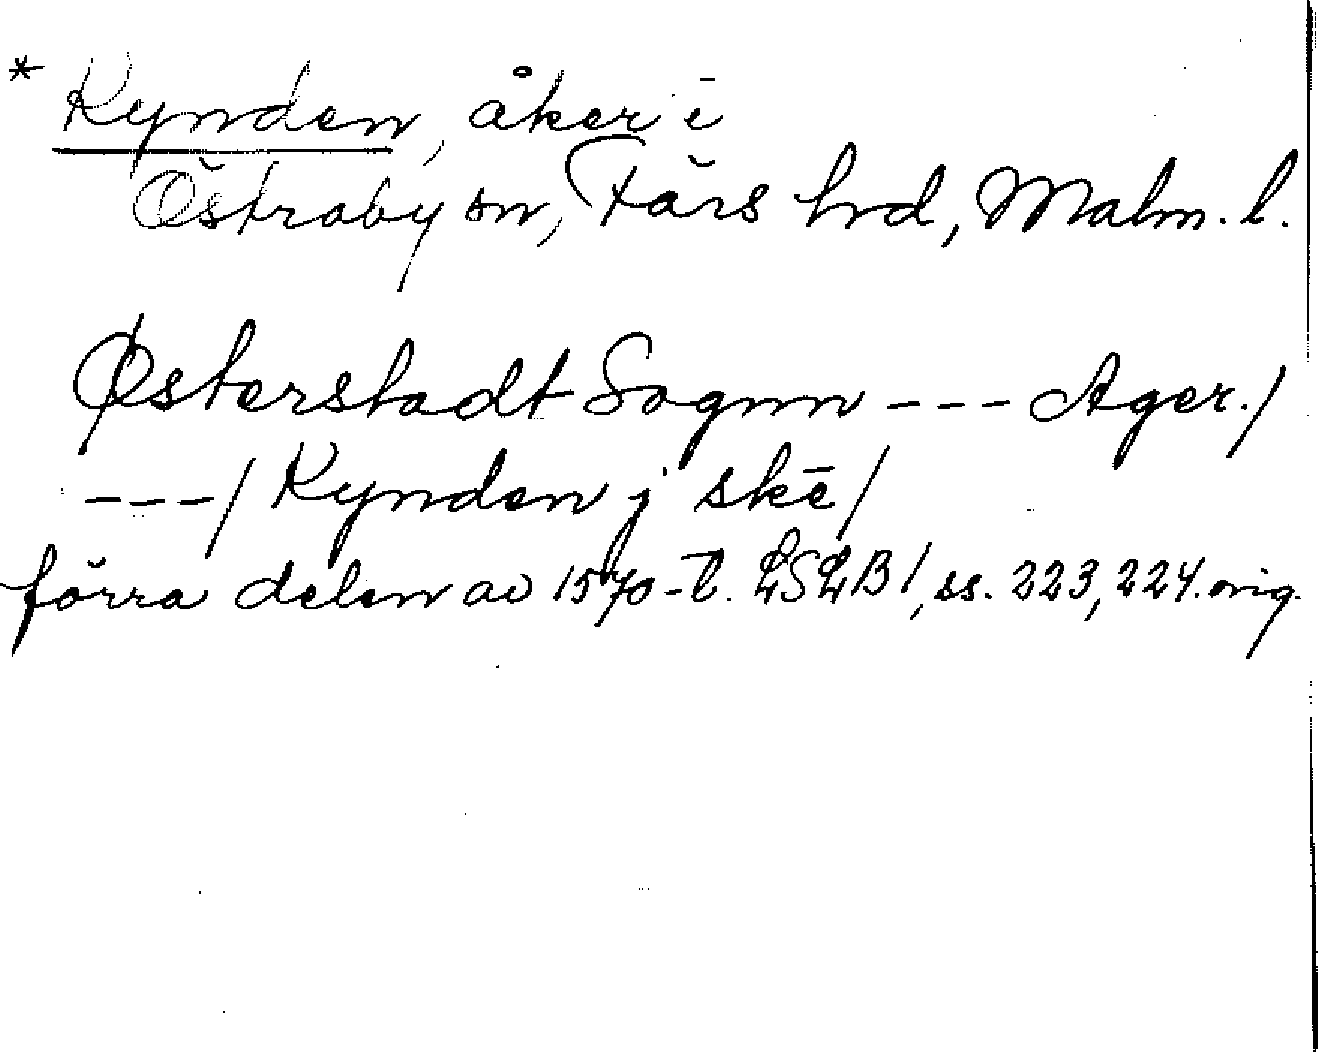 * Kynden, åker i
Östraby sn, Färs hrd, Malm. l.
Østerstadt Sognn --- Ager./
---/ Kynden j skē/
förra delen av 1570-t. LSLB 1, ss. 223, 224. orig.